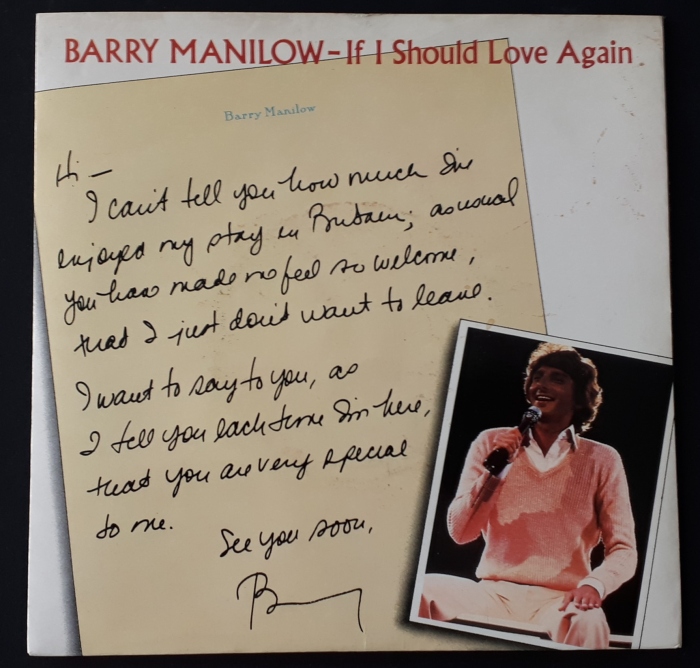 BARRY MANILOW-If I Should Love Again
Barry Manilow
Hi —
I can't tell you how much I've
enjoyed my stay in Britain; as usual
you have made me feel so welcome,
that I just don't want to leave.
I want to say to you, as
I tell you each time I'm here,
that you are very special
to me.
See you soon,
Barry